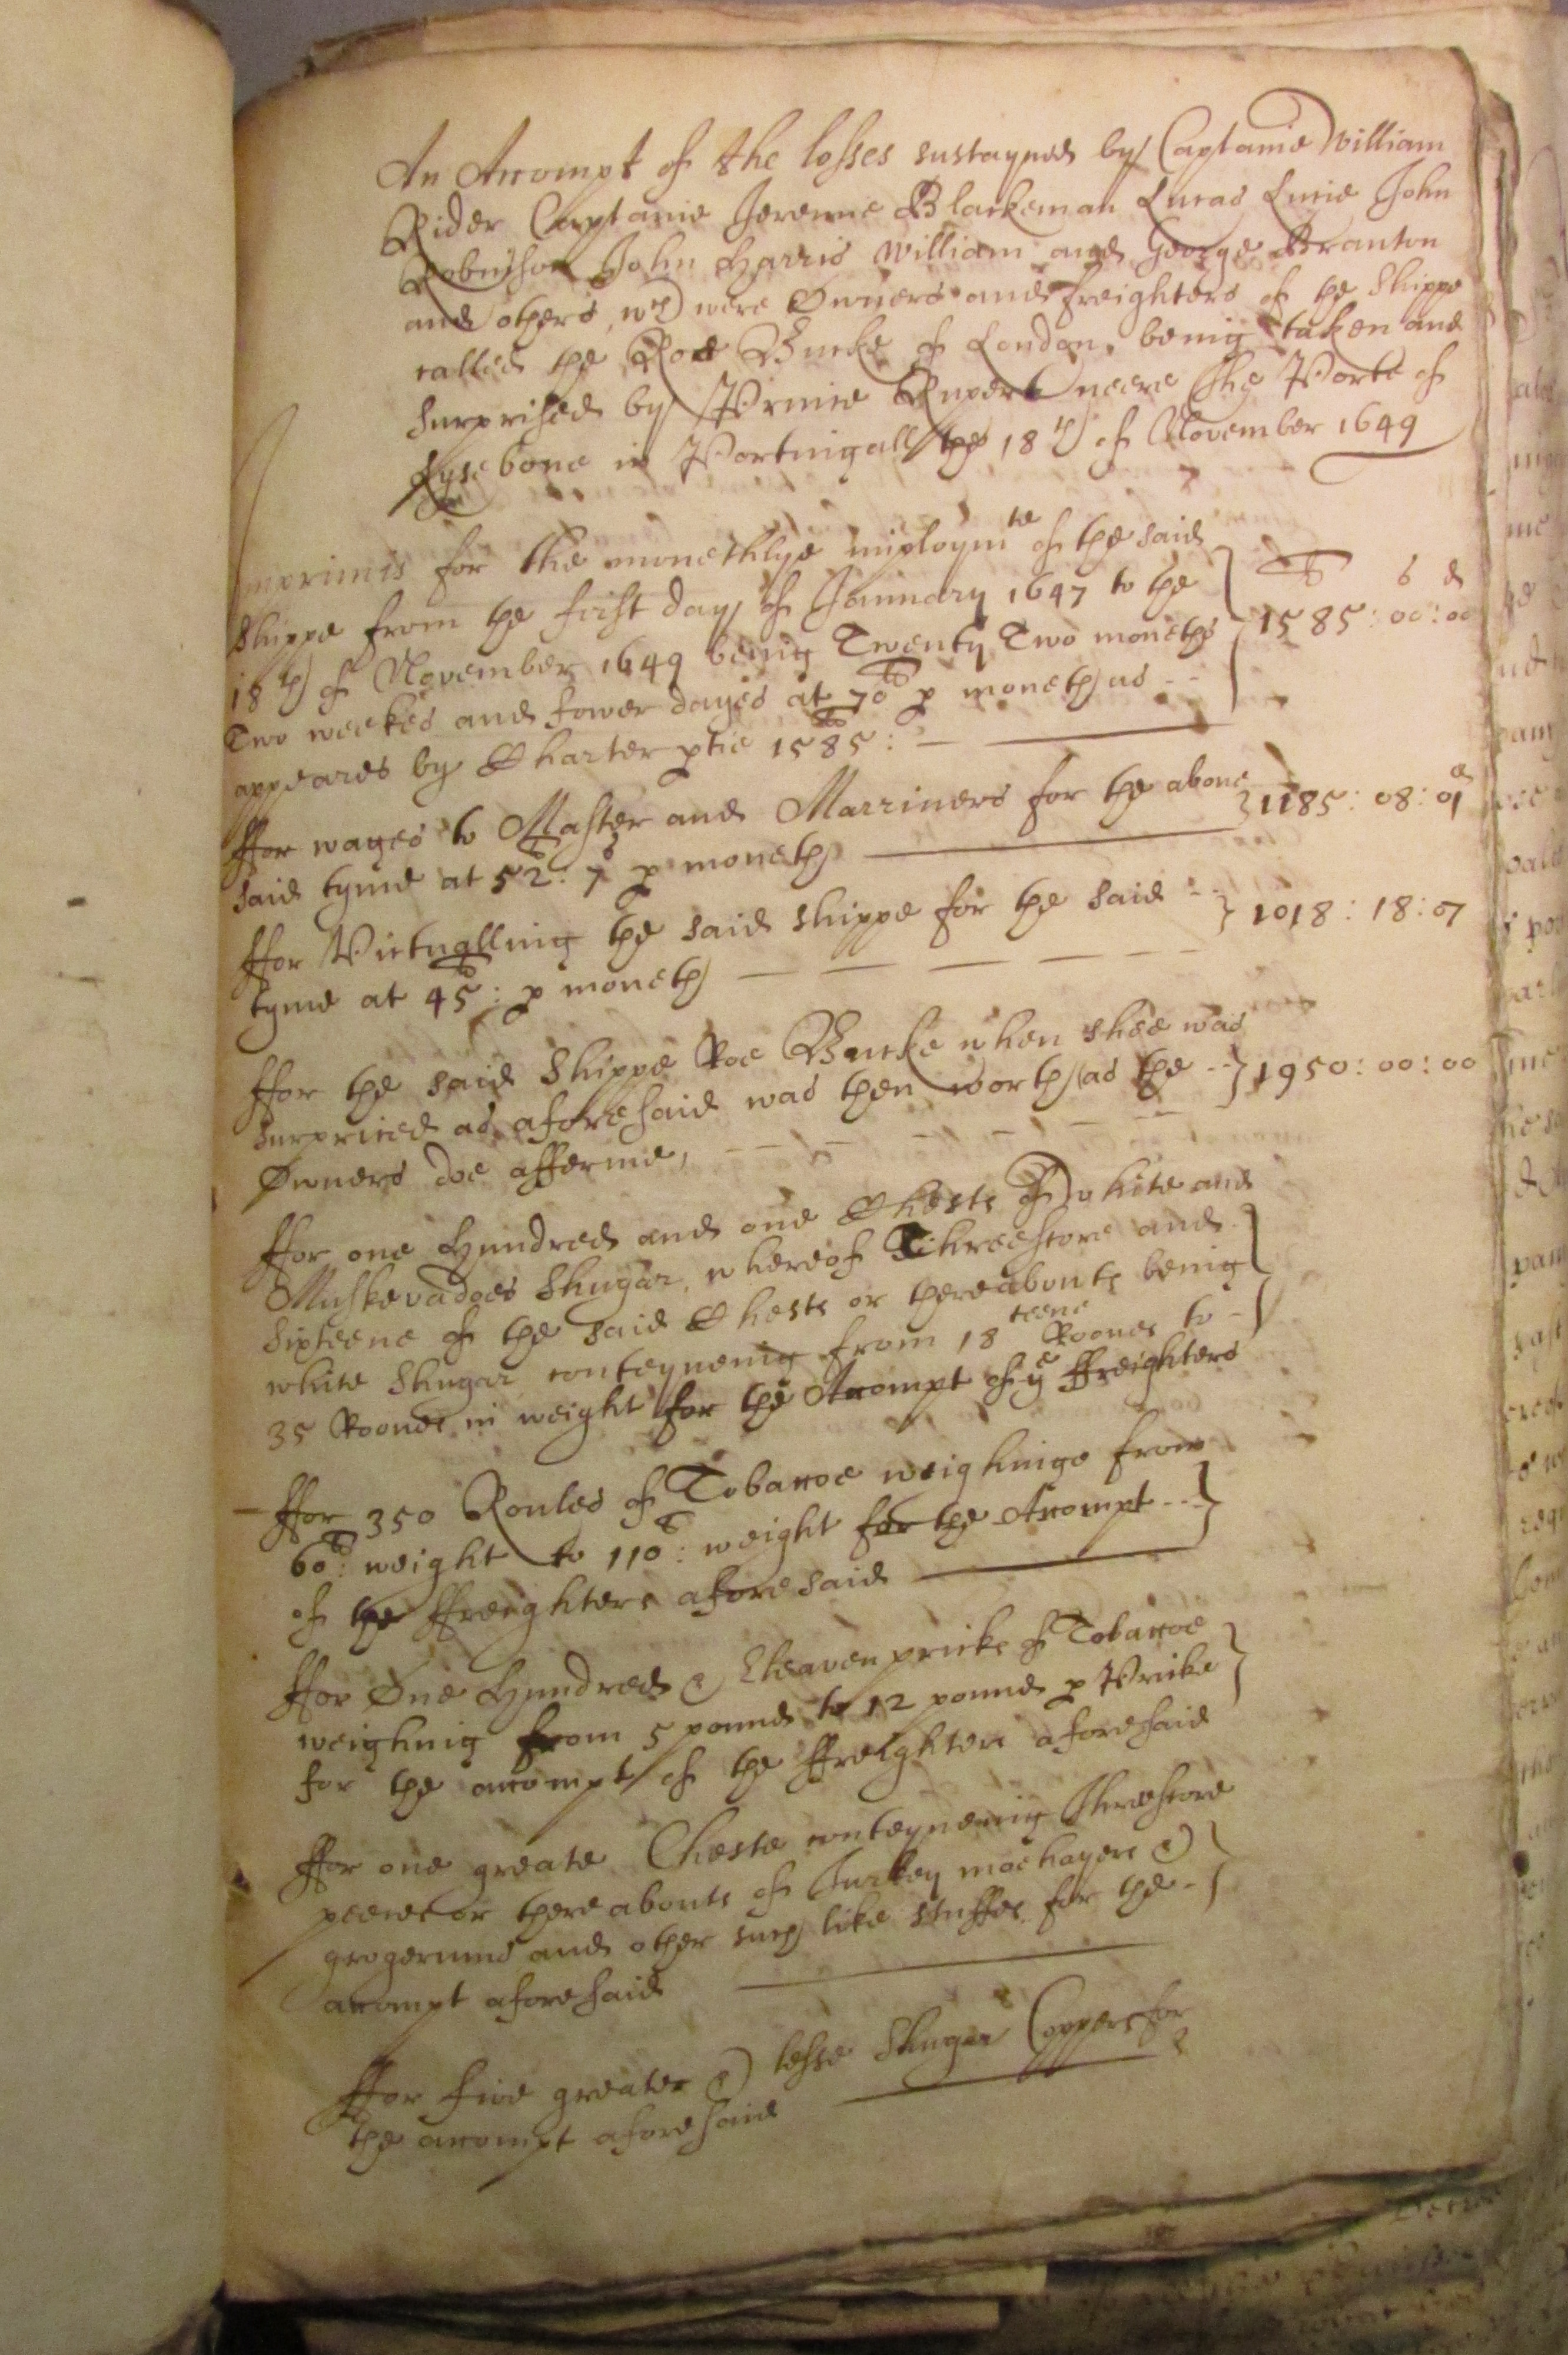 An Accompt of the losses sustayned by Captaine William
Rider Captaine Jeremie Blackeman Lucas Lucie John
Robinson John Harris William and George Branton
and others, wch were Owners and freighters of the Shippe
called the Roe Bucke of London, being taken and
surprised by Prince Rupert neere the Porte of
Lysebone in Portuigall the 18th of November 1649
Imprimis for the monethlye imploymte of the said
Shippe from the first day of January 1647 to the
18th of November 1649 being Twenty Two moneths
Two weekes and fower dayes at 70li p moneth as
appeares by Charter ptie 1585li: —
li s d
1585: 00: 00
ffor wages to Master and Marriners for the above
said tyme at 52li: 7s p moneth
1185: 08: 01d
ffor Victualling the said shippe for the said
tyme at 45li: p moneth
1018: 18: 07
ffor the said Shippe Roe Bucke when shee was
surprised as aforesaid was then worth as the
Owners doe afferme,
1950: 00: 00
ffor one Hundred and one Chests of white and
Muskevadoes Shugar, whereof Threescore and
Sixteene of the said Chests or thereabouts being
white Shugar conteyneing from 18teene Roones to
35 Roones in weight for the Accompt of ye ffreighters
ffor 350 Roules of Tobaccoe weighinge from
60li: weight to 110li: weight for the Accompt
of the ffreighters aforesaid
ffor One Hundred & Eleaven pricks of Tobaccoe
weighing from 5 pound to 12 pound p Pricke
for the accompt of the ffreighters aforesaid
ffor one greate Cheste conteyneing Threescore
peeces or thereabouts of Turkey mochayers &
grogerums and other such like stuffes for the
accompt aforesaid
ffor five greater & lesse Shugar Coppers for
the accompt aforesaid